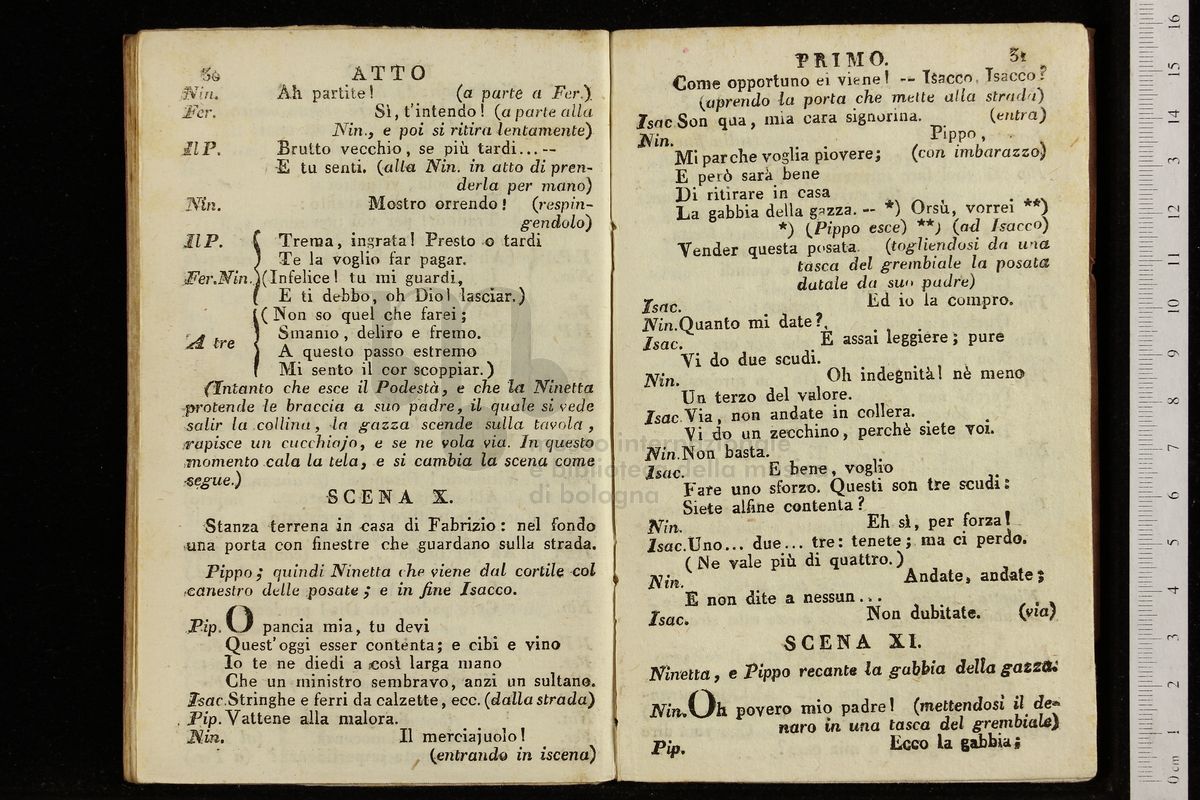 30 ATTO
Nin. Ah partite! (a parte a Fer.)
Fer. Sì, t'intendo! (a parte alla
Nin., e poi si ritira lentamente)
Il P. Brutto vecchio, se più tardi... --
E tu senti. (alla Nin. in atto di pren-
derla per mano)
Nin. Mostro orrendo! (respin-
gendolo)
Il P. Trema, ingrata! Presto o tardi
Te la voglio far pagar.
Fer.Nin. (Infelice! tu mi guardi,
E ti debbo, oh Dio! lasciar.)
(Non so quel che farei;
Smanio, deliro e fremo.
A tre
A questo passo estremo
Mi sento il cor scoppiar.)
(Intanto che esce il Podestà, e che la Ninetta
protende le braccia a suo padre, il quale si vede
salir la collina, la gazza scende sulla tavola,
rapisce un cucchiajo, e se ne vola via. In questo
momento cala la tela, e si cambia la scena come
segue.)
SCENA X.
Stanza terrena in casa di Fabrizio: nel fondo
una porta con finestre che guardano sulla strada.
Pippo; quindi Ninetta che viene dal cortile col
canestro delle posate; e in fine Isacco.
Pip. O pancia mia, tu devi
Quest'oggi esser contenta; e cibi e vino
Io te ne diedi a così larga mano
Che un ministro sembravo, anzi un sultano.
Isac. Stringhe e ferri da calzette, ecc. (dalla strada)
Pip. Vattene alla malora.
Nin. Il merciajuolo!
(entrando in iscena)
PRIMO. 31
Come opportuno ei viene! -- Isacco, Isacco?
(aprendo la porta che mette alla strada)
Isac. Son qua, mia cara signorina. (entra)
Nin. Pippo,
Mi par che voglia piovere; (con imbarazzo)
E però sarà bene
Di ritirare in casa
La gabbia della gazza. -- *) Orsù, vorrei **)
*) (Pippo esce) **) (ad Isacco)
Vender questa posata. (togliendosi da una
tasca del grembiale la posata
datale da suo padre)
Isac. Ed io la compro.
Nin. Quanto mi date?
Isac. È assai leggiere; pure
Vi do due scudi.
Nin. Oh indegnità! nè meno
Un terzo del valore.
Isac. Via, non andate in collera.
Vi do un zecchino, perchè siete voi.
Nin. Non basta.
Isac. E bene, voglio
Fare uno sforzo. Questi son tre scudi:
Siete alfine contenta?
Nin. Eh sì, per forza!
Isac. Uno... due... tre: tenete; ma ci perdo.
(Ne vale più di quattro.)
Nin. Andate, andate;
E non dite a nessun...
Isac. Non dubitate. (via)
SCENA XI.
Ninetta, e Pippo recante la gabbia della gazza.
Nin. Oh povero mio padre! (mettendosi il de-
naro in una tasca del grembiale)
Pip. Ecco la gabbia;
museo internazionale
e biblioteca della musica
di bologna
0 cm 1 2 3 4 5 6 7 8 9 10 11 12 13 14 15 16